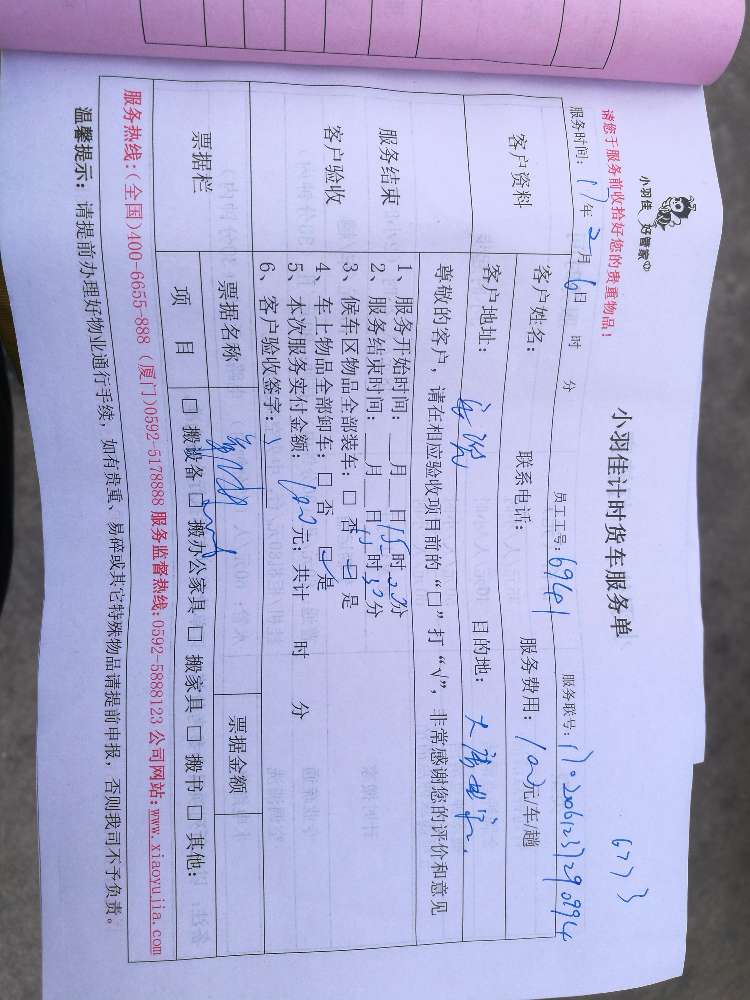 小羽佳 好管家
小羽佳计时货车服务单
6773
请您于服务前收拾好您的贵重物品！
服务时间：17年2月6日 时 分 员工工号：69441 服务联号：
客户资料 客户姓名： 联系电话： 服务费用：100元/车/趟
客户地址： 目的地：
尊敬的客户，请在相应验收项目前的“□”打“√”，非常感谢您的评价和意见
服务结束
客户验收
1、服务开始时间：__月__日15时 分
2、服务结束时间：__月__日15时30分
3、候车区物品全部装车：□ 否 ☑ 是
4、车上物品全部卸车：□ 否 ☑ 是
5、本次服务实付金额：100元；共计 时 分
6、客户验收签字：
票据栏 票据名称 票据金额
项 目 □ 搬设备 □ 搬办公家具 □ 搬家具 □ 搬书 □ 其他:
服务热线:(全国)400-6655-888 (厦门)0592-5178888 服务监督热线:0592-5888123 公司网站:www.xiaoyujia.com
温馨提示：请提前办理好物业通行手续，如有贵重、易碎或其它特殊物品请提前申报，否则我司不予负责。